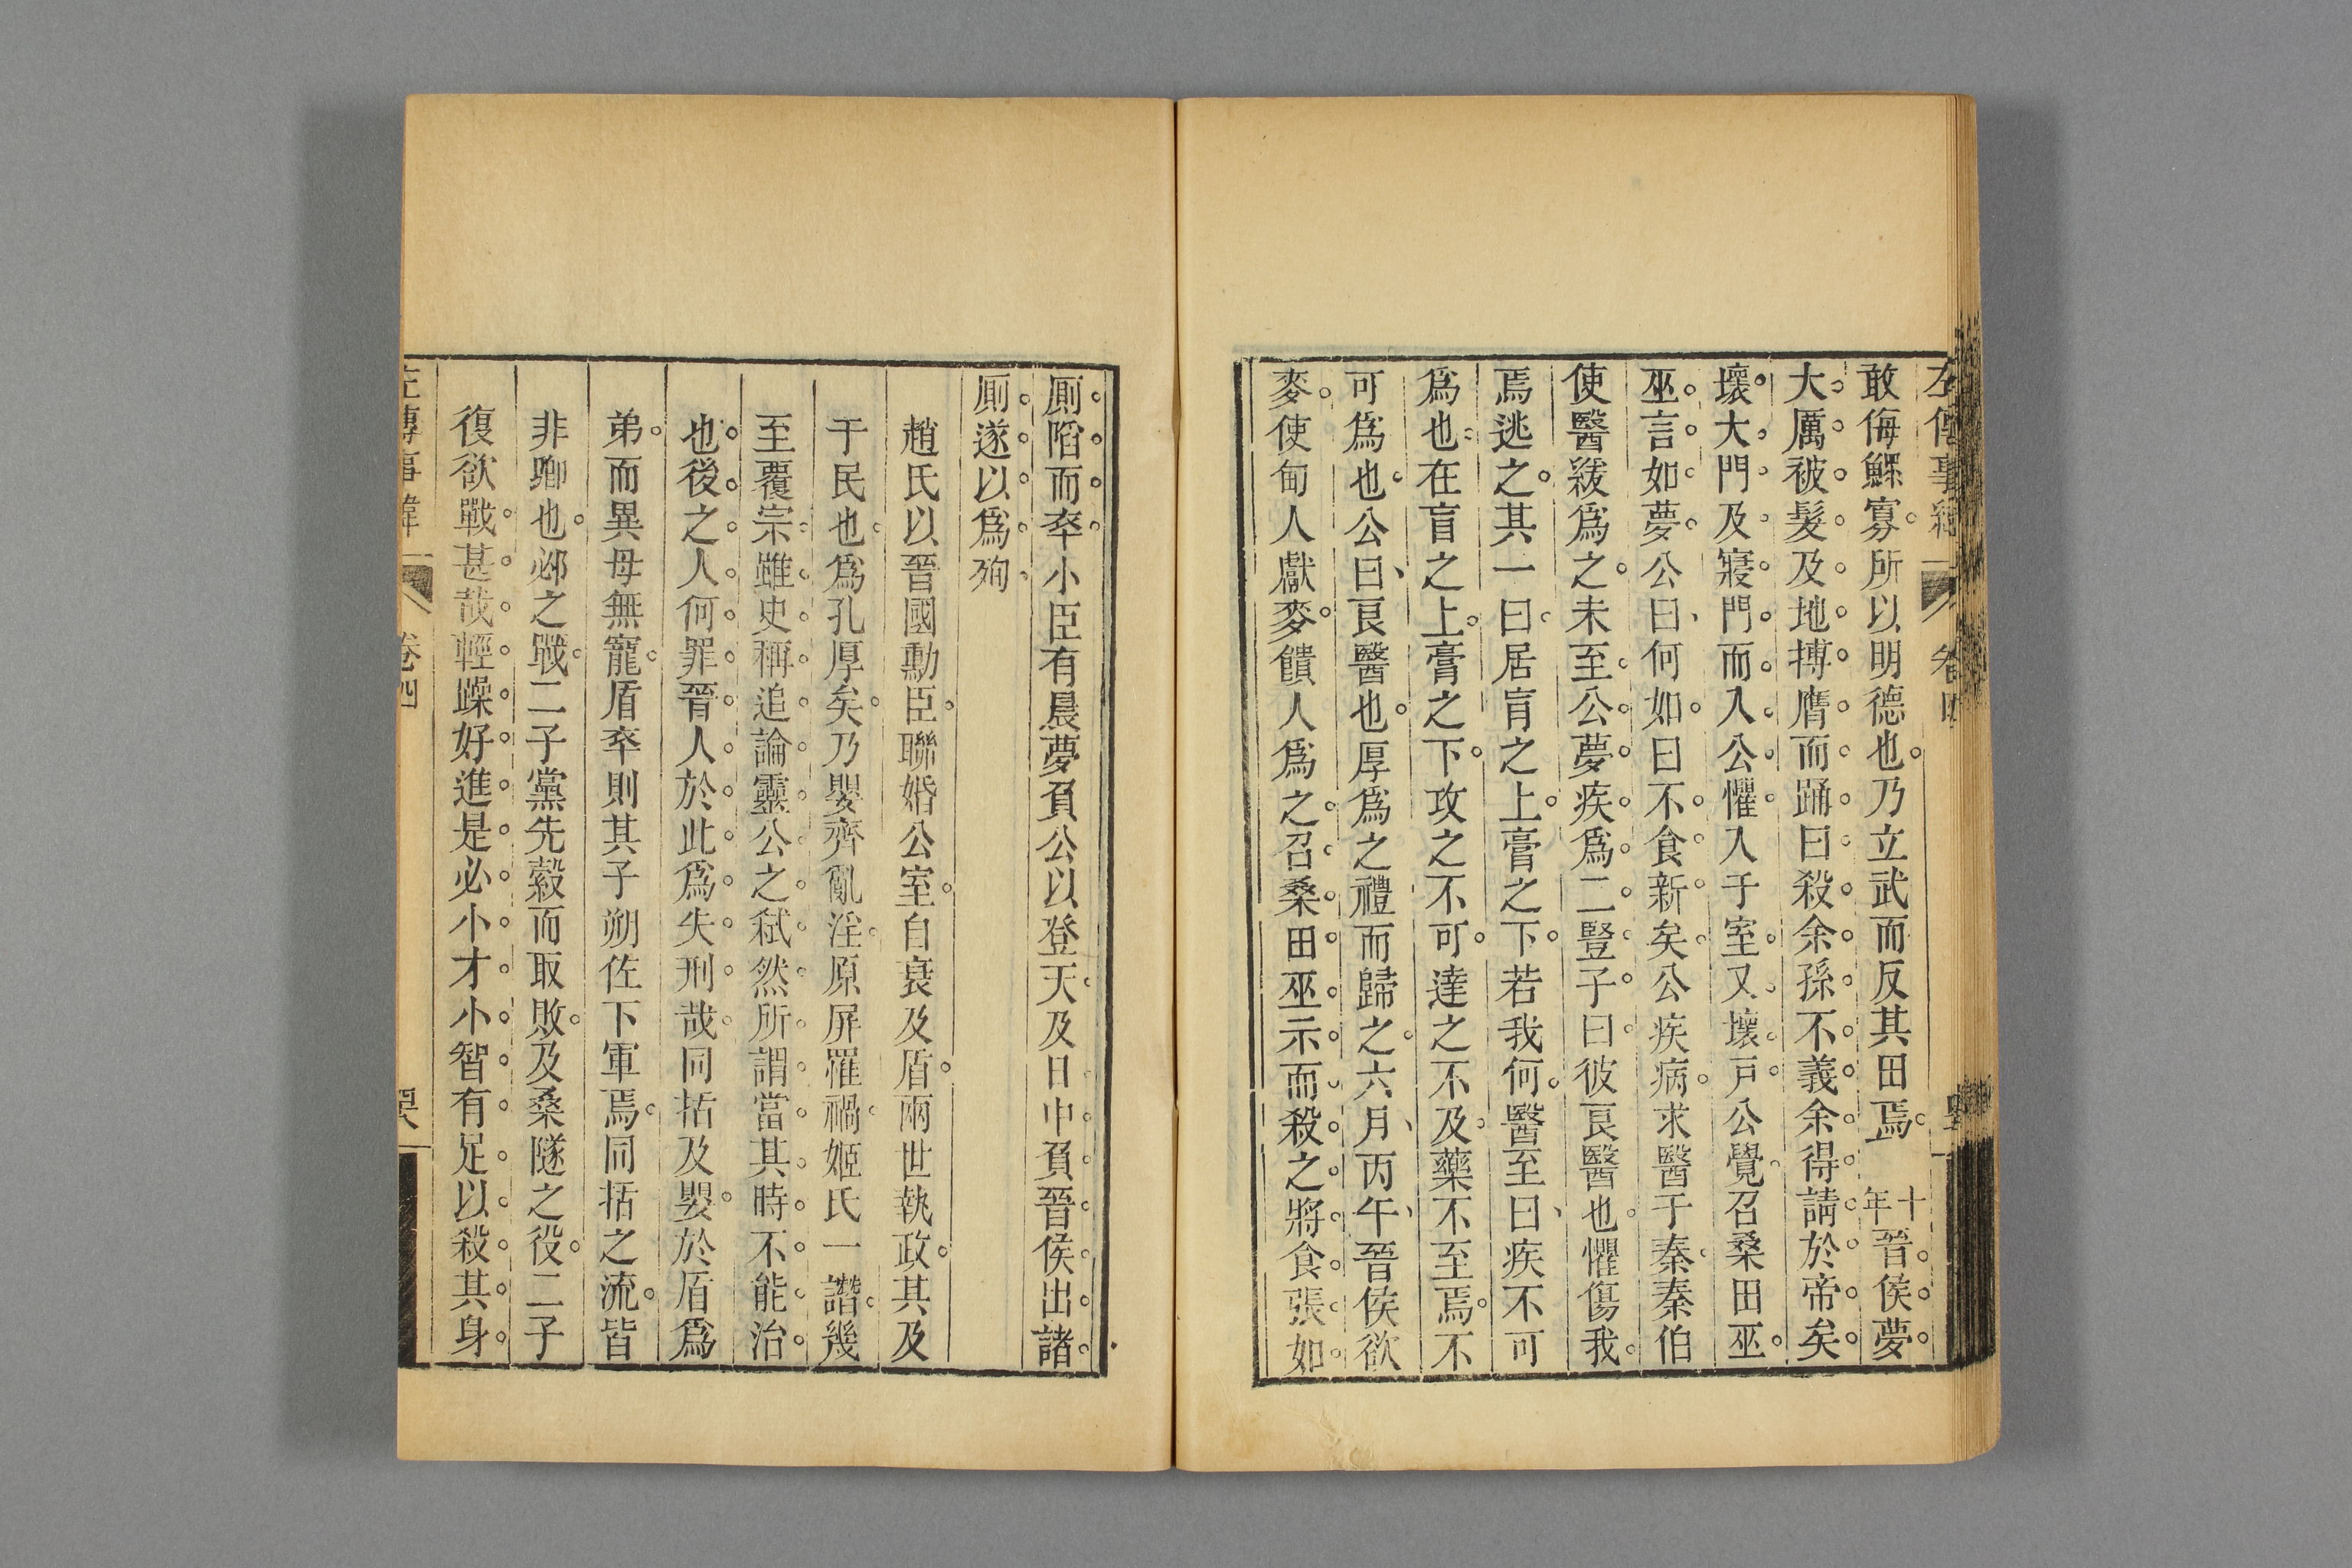 敢侮鰥寡所以明德也乃立武而反其田焉十年晉侯夢
大厲被髮及地搏膺而踊曰殺余孫不義余得請於帝矣
壞大門及寢門而入公懼入于室又壞戶公覺召桑田巫
巫言如夢公曰何如曰不食新矣公疾病求醫于秦秦伯
使醫緩爲之未至公夢疾爲二豎子曰彼良醫也懼傷我
焉逃之其一曰居肓之上膏之下若我何醫至曰疾不可
爲也在肓之上膏之下攻之不可達之不及藥不至焉不
可爲也公曰良醫也厚爲之禮而歸之六月丙午晉侯欲
麥使甸人獻麥饋人爲之召桑田巫示而殺之將食張如
廁陷而卒小臣有晨夢負公以登天及日中負晉侯出諸
廁遂以爲殉
趙氏以晉國勳臣聯婚公室自衰及盾兩世執政其及
于民也爲孔厚矣乃嬰齊亂淫原屏罹禍姬氏一譖幾
至覆宗雖史稱追論靈公之弒然所謂當其時不能治
也後之人何罪晉人於此爲失刑哉同括及嬰於盾爲
弟而異母無寵盾卒則其子朔佐下軍焉同括之流皆
非卿也邲之戰二子黨先縠而取敗及桑隧之役二子
復欲戰甚哉輕躁好進是必小才小智有足以殺其身
左傳事緯 卷四